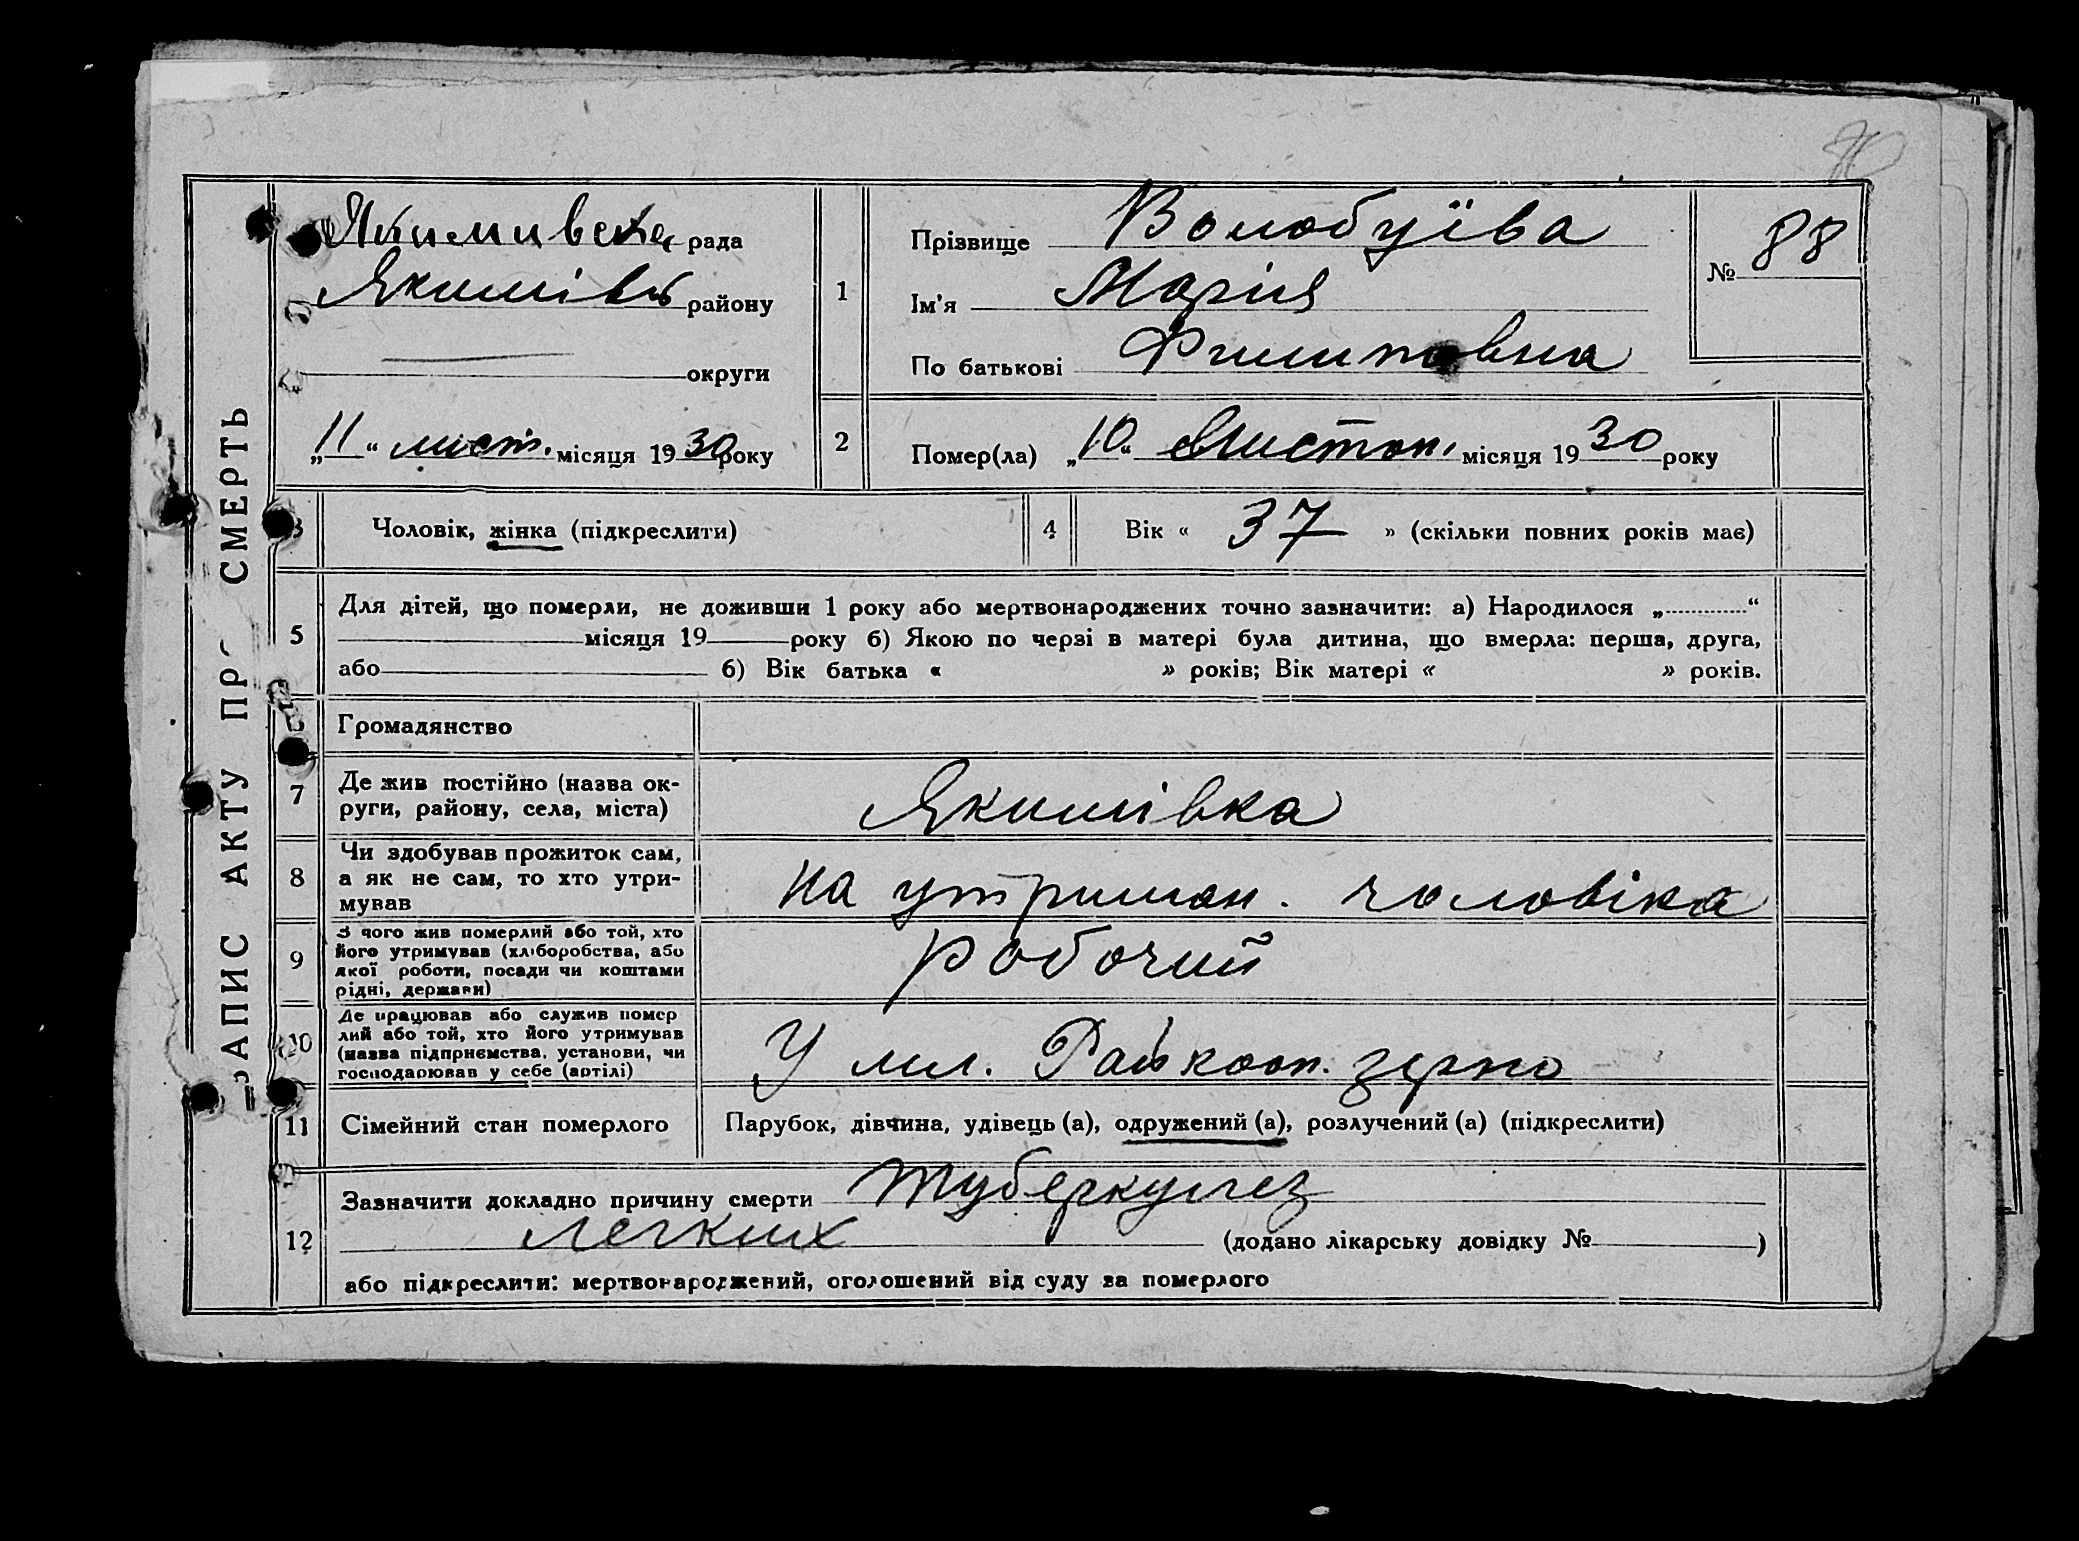 ЗАПИС АКТУ ПРО СМЕРТЬ
рада
Якимівс району
округи
„11“ лист. місяця 1930 року
1
Прізвище Волобуїва
Ім'я Марія
По батькові Филиповна
№ 88
2
Помер(ла) „10“ Листоп. місяця 1930 року
3
Чоловік, жінка (підкреслити)
4
Вік « 37 » (скільки повних років має)
5
Для дітей, що померли, не доживши 1 року або мертвонароджених точно зазначити: а) Народилося „ “
місяця 19 року б) Якою по черзі в матері була дитина, що вмерла: перша, друга,
або б) Вік батька « » років; Вік матері « » років.
Громадянство
7
Де жив постійно (назва ок-
руги, району, села, міста)
Якимівка
8
Чи здобував прожиток сам,
а як не сам, то хто утри-
мував
На утриман. чоловіка
9
З чого жив померлий або той, хто
його утримував (хліборобства, або
якої роботи, посади чи коштами
рідні, держави)
робочий
10
Де працював або служив помер
лий або той, хто його утримував
(назва підприємства, установи, чи
господарював у себе (артілі)
У мл. Райкооп. зерно
11
Сімейний стан померлого
Парубок, дівчина, удівець (а), одружений (а), розлучений (а) (підкреслити)
12
Зазначити докладно причину смерти туберкульоз
легких (додано лікарську довідку № )
або підкреслити: мертвонароджений, оголошений від суду за померлого